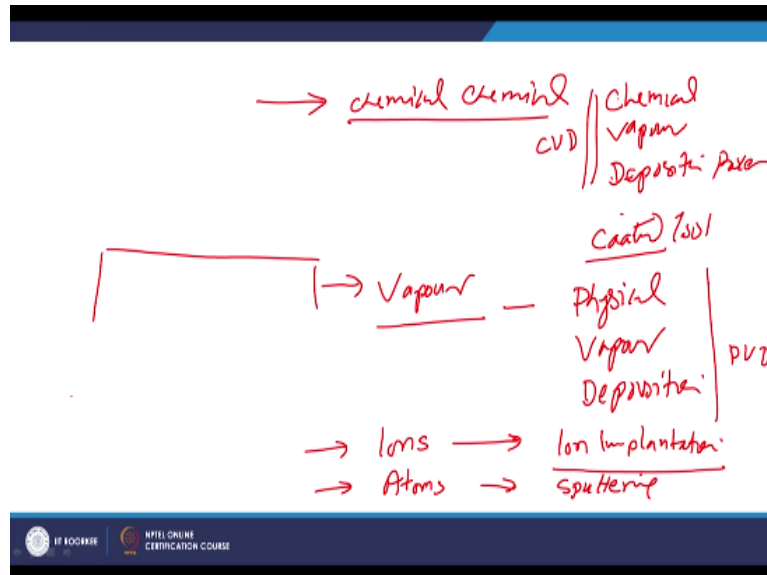 → chemical chemical
CVD
Chemical
Vapour
Deposition
Coated Tool
→ Vapour –
Physical
Vapour
Deposition
PVD
→ Ions → Ion Implantation
→ Atoms → sputtering
IIT ROORKEE
NPTEL ONLINE
CERTIFICATION COURSE